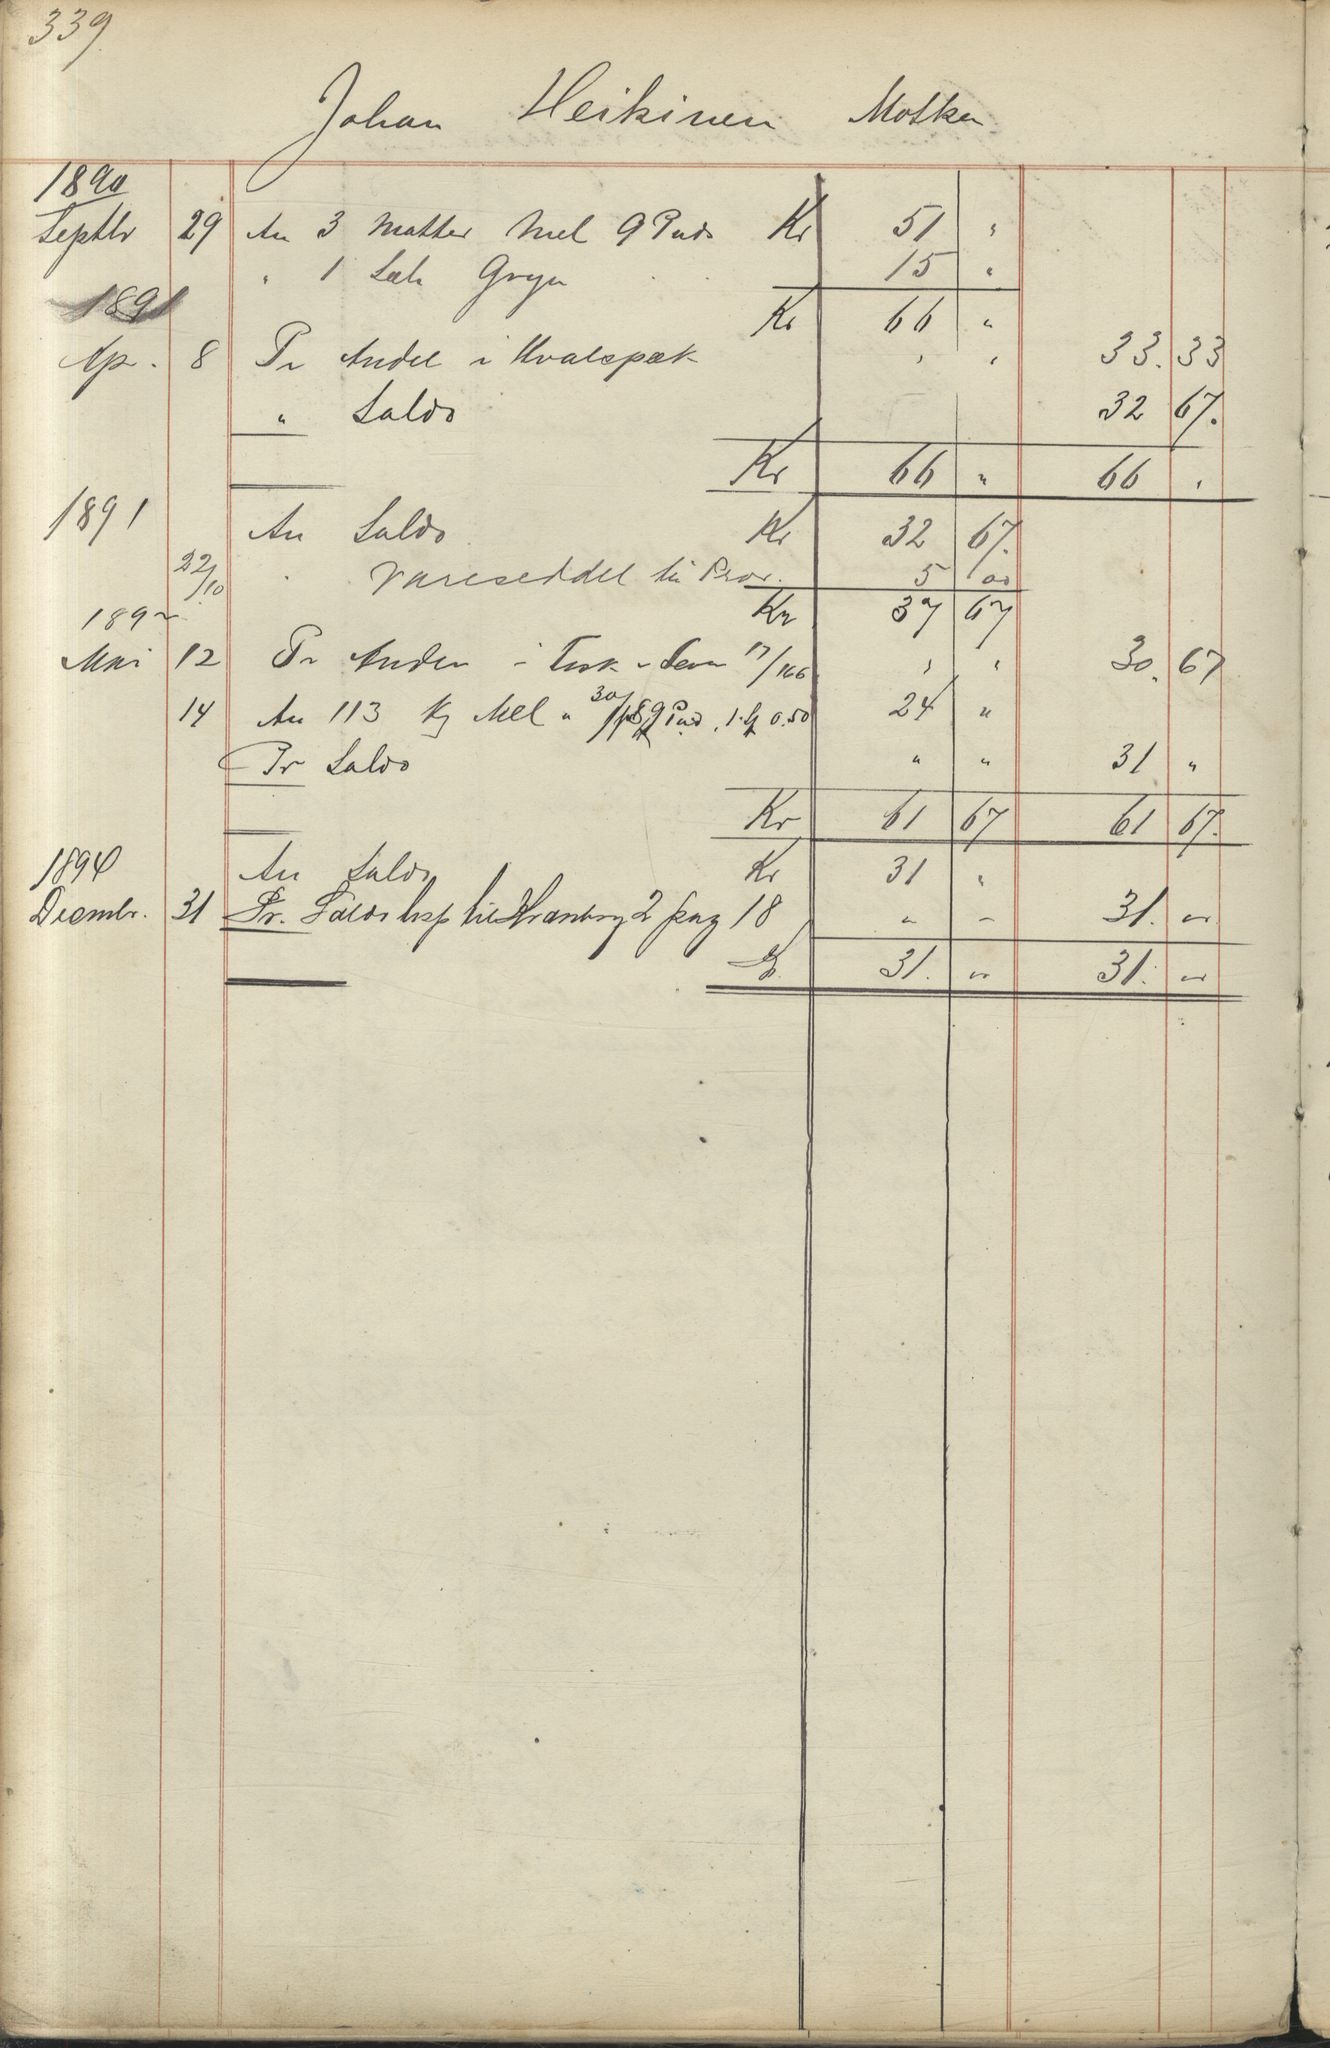 339
Johan Heikinen Motka
1890
Septbr 29 An 3 Matter Mel 9 Puds Kr 51 "
" 1 Sæk Gryn 15 "
1891 Kr 66 "
Ap. 8 Pr Andel i Hvalspæk " " 33. 33
" Saldo 32 67.
Kr 66 " 66 "
1891 An Saldo Kr 32 67.
22/10 " Vareseddel til 5 00
1892 Kr 37 67
Mai 12 Pr Andel i 17/166 " " 30. 67
14 An 113 Kg Mel " 24 "
Pr Saldo " " 31 "
Kr 61 67 61 67.
An Saldo Kr 31 "
1894
Decmbr. 31 Pr. Saldo trsp til 2 pag 18 " " 31. "
Kr. 31. " 31. "